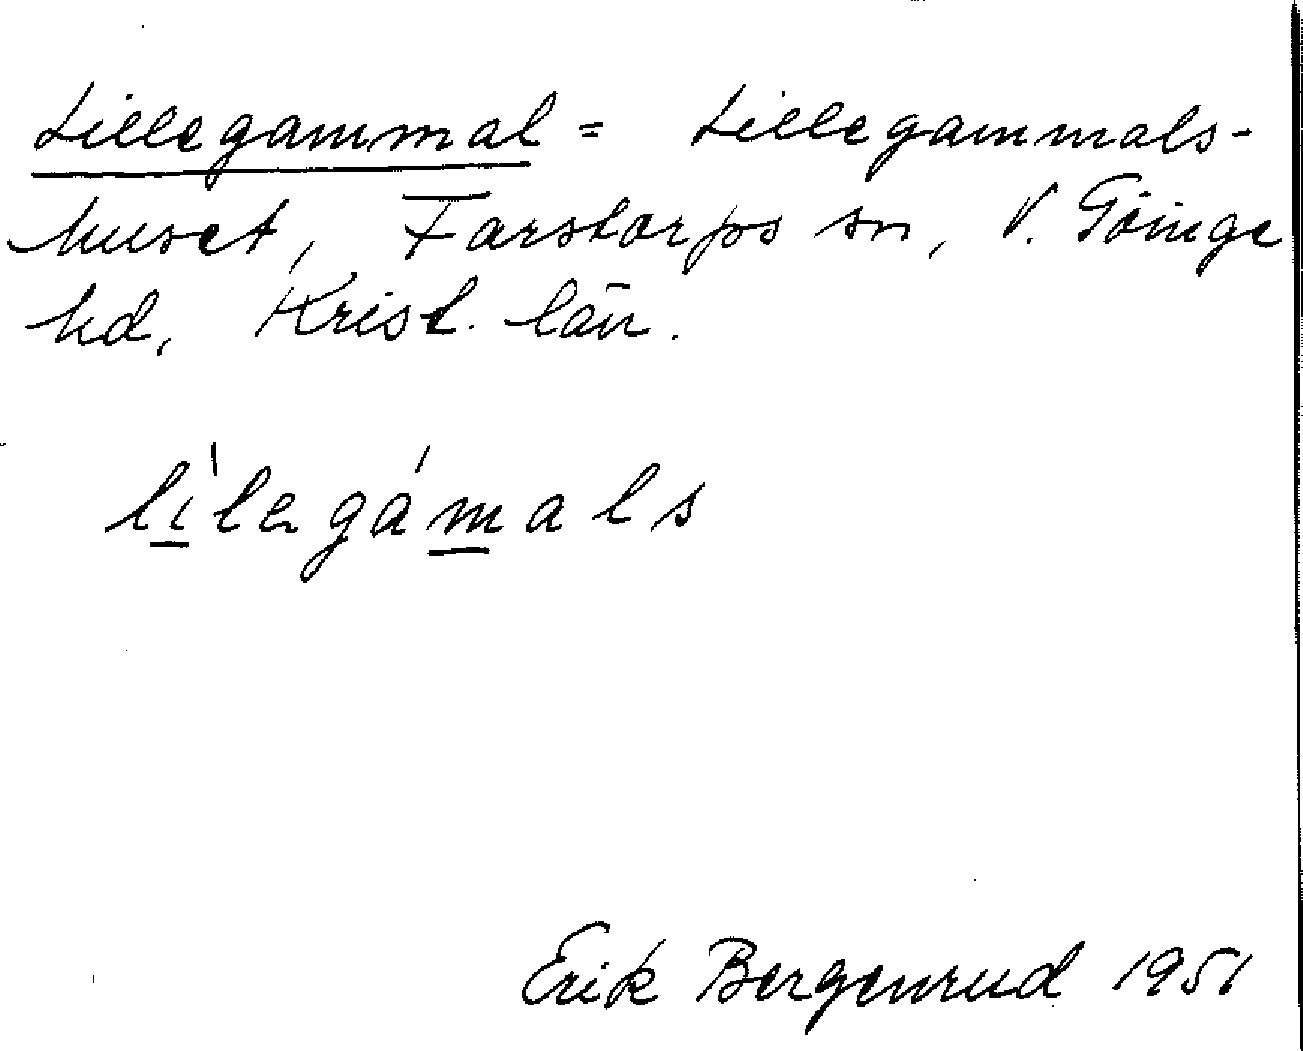 Lillegammal = Lillegammals-
huset, Farstorps sn, V. Göinge
hd, Krist. län.
lìlegámals
Erik Bergenrud 1951